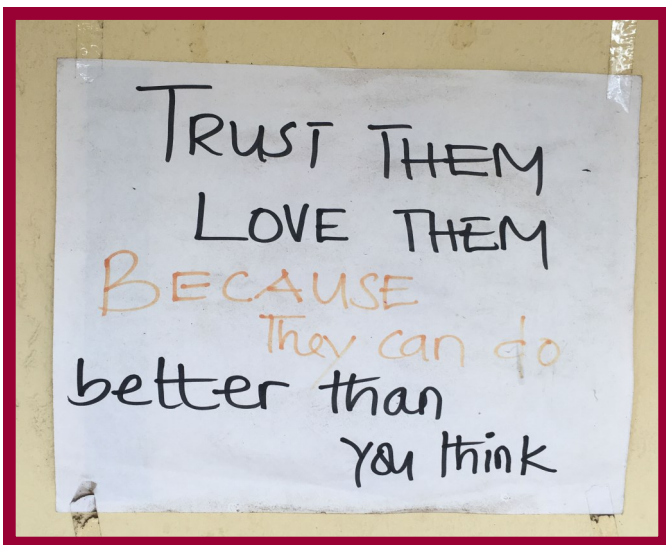 TRUST THEM
LOVE THEM
BECAUSE
They can do
better than
you think